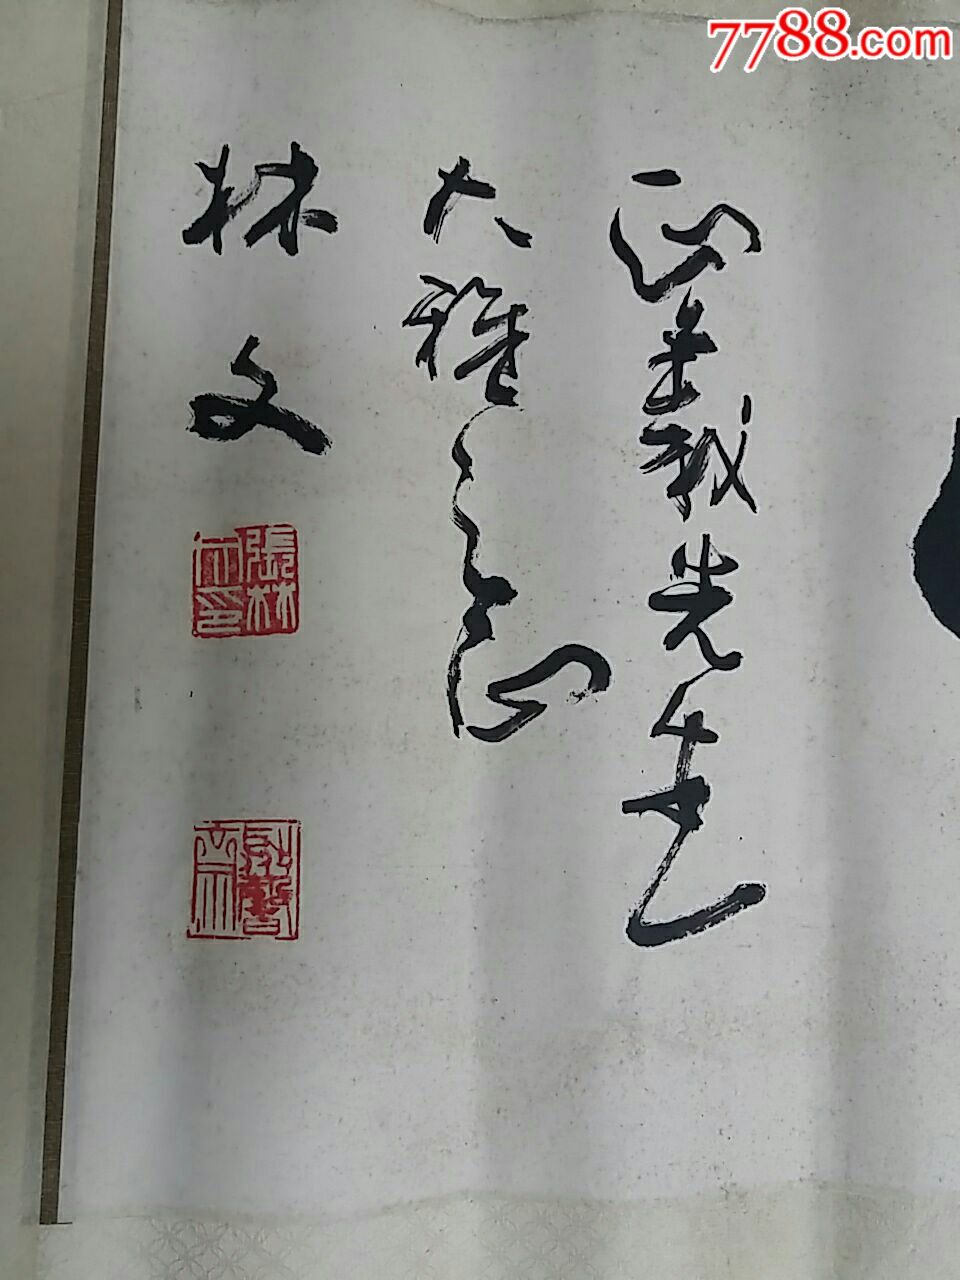 7788.com
正义先生
大雅之正
林文
張林文印